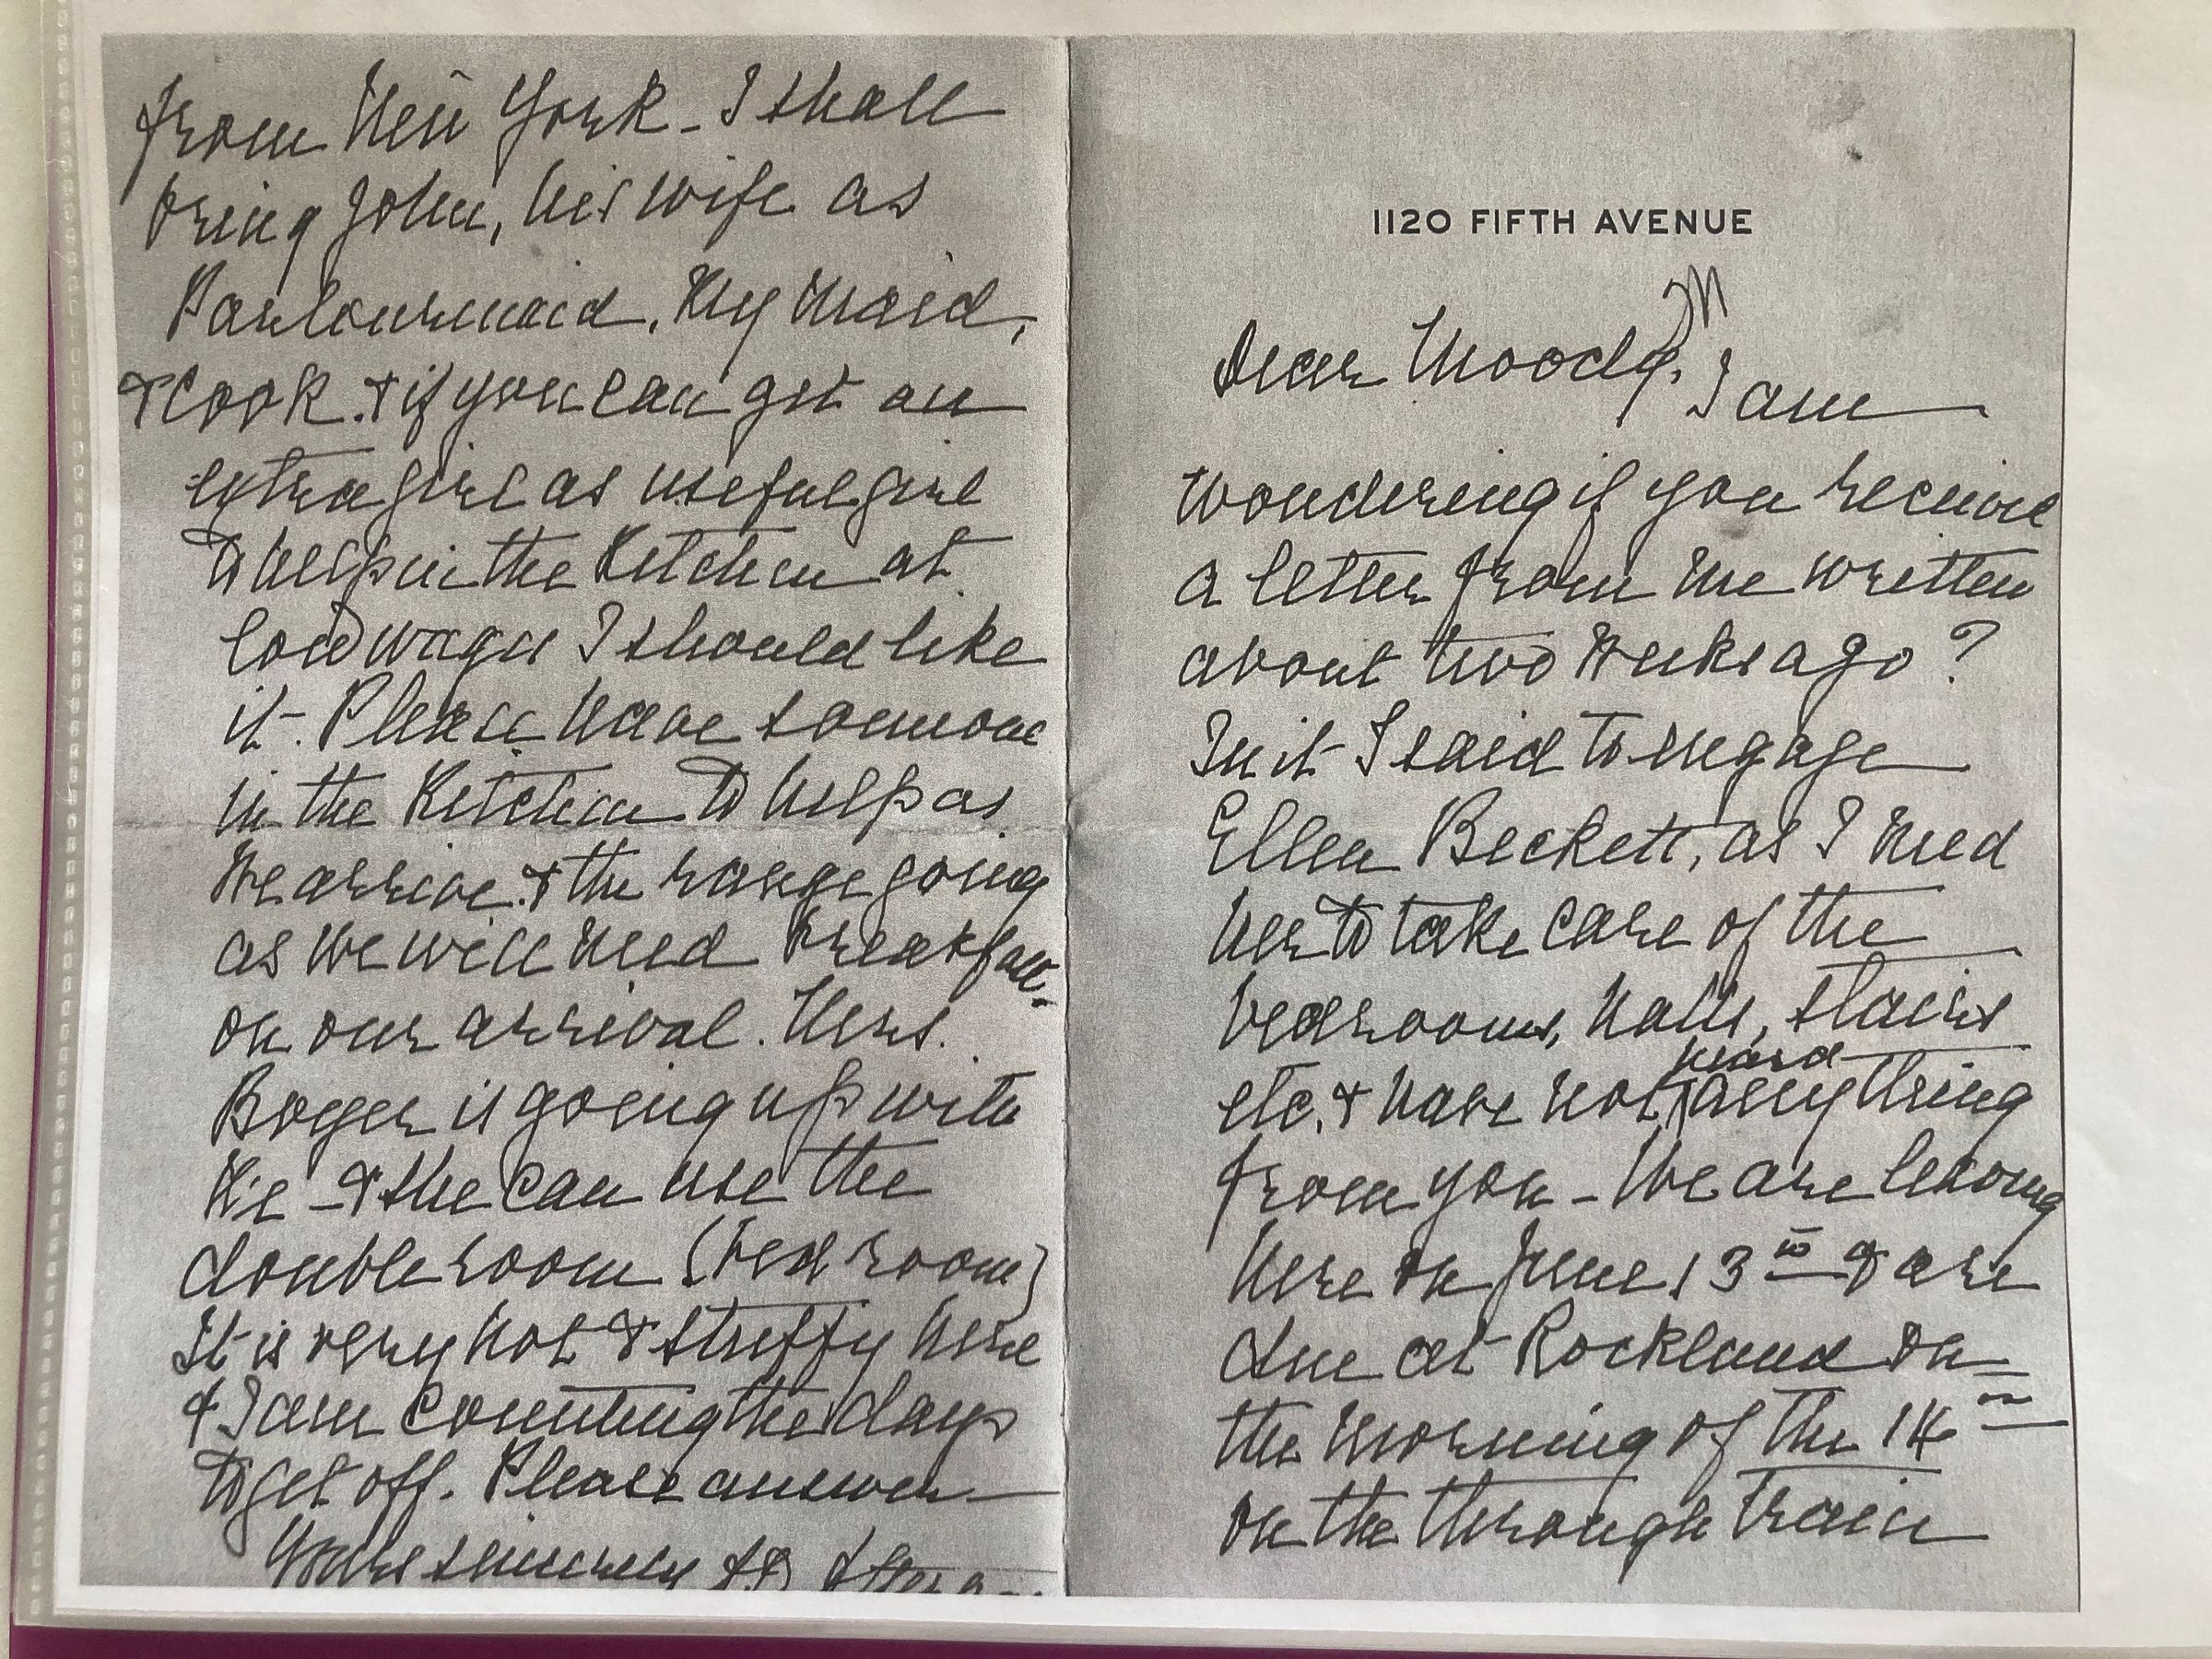 1120 FIFTH AVENUE
Dear Moody, I am
wondering if you receive
a letter from me written
about two weeks ago?
In it I said to engage
Ellen Beckett, as I need
her to take care of the
bedrooms, halls, stairs
etc. & have not heard anything
from you - We are leaving
here on June 13th & are
due at Rockland on
the morning of the 14th
on the through train
from New York - I shall
bring John, his wife as
Parlourmaid, my maid,
& Cook. & if you can get an
extra girl as useful girl
to help in the kitchen at
low wages I should like
it - Please have someone
in the kitchen to help as
we arrive. & the range going
as we will need breakfast
on our arrival. Mrs.
Boyer is going up with
me - & she can use the
double room (bed room)
It is very hot & stuffy here
& I am counting the days
to get off. Please answer
Yours sincerely